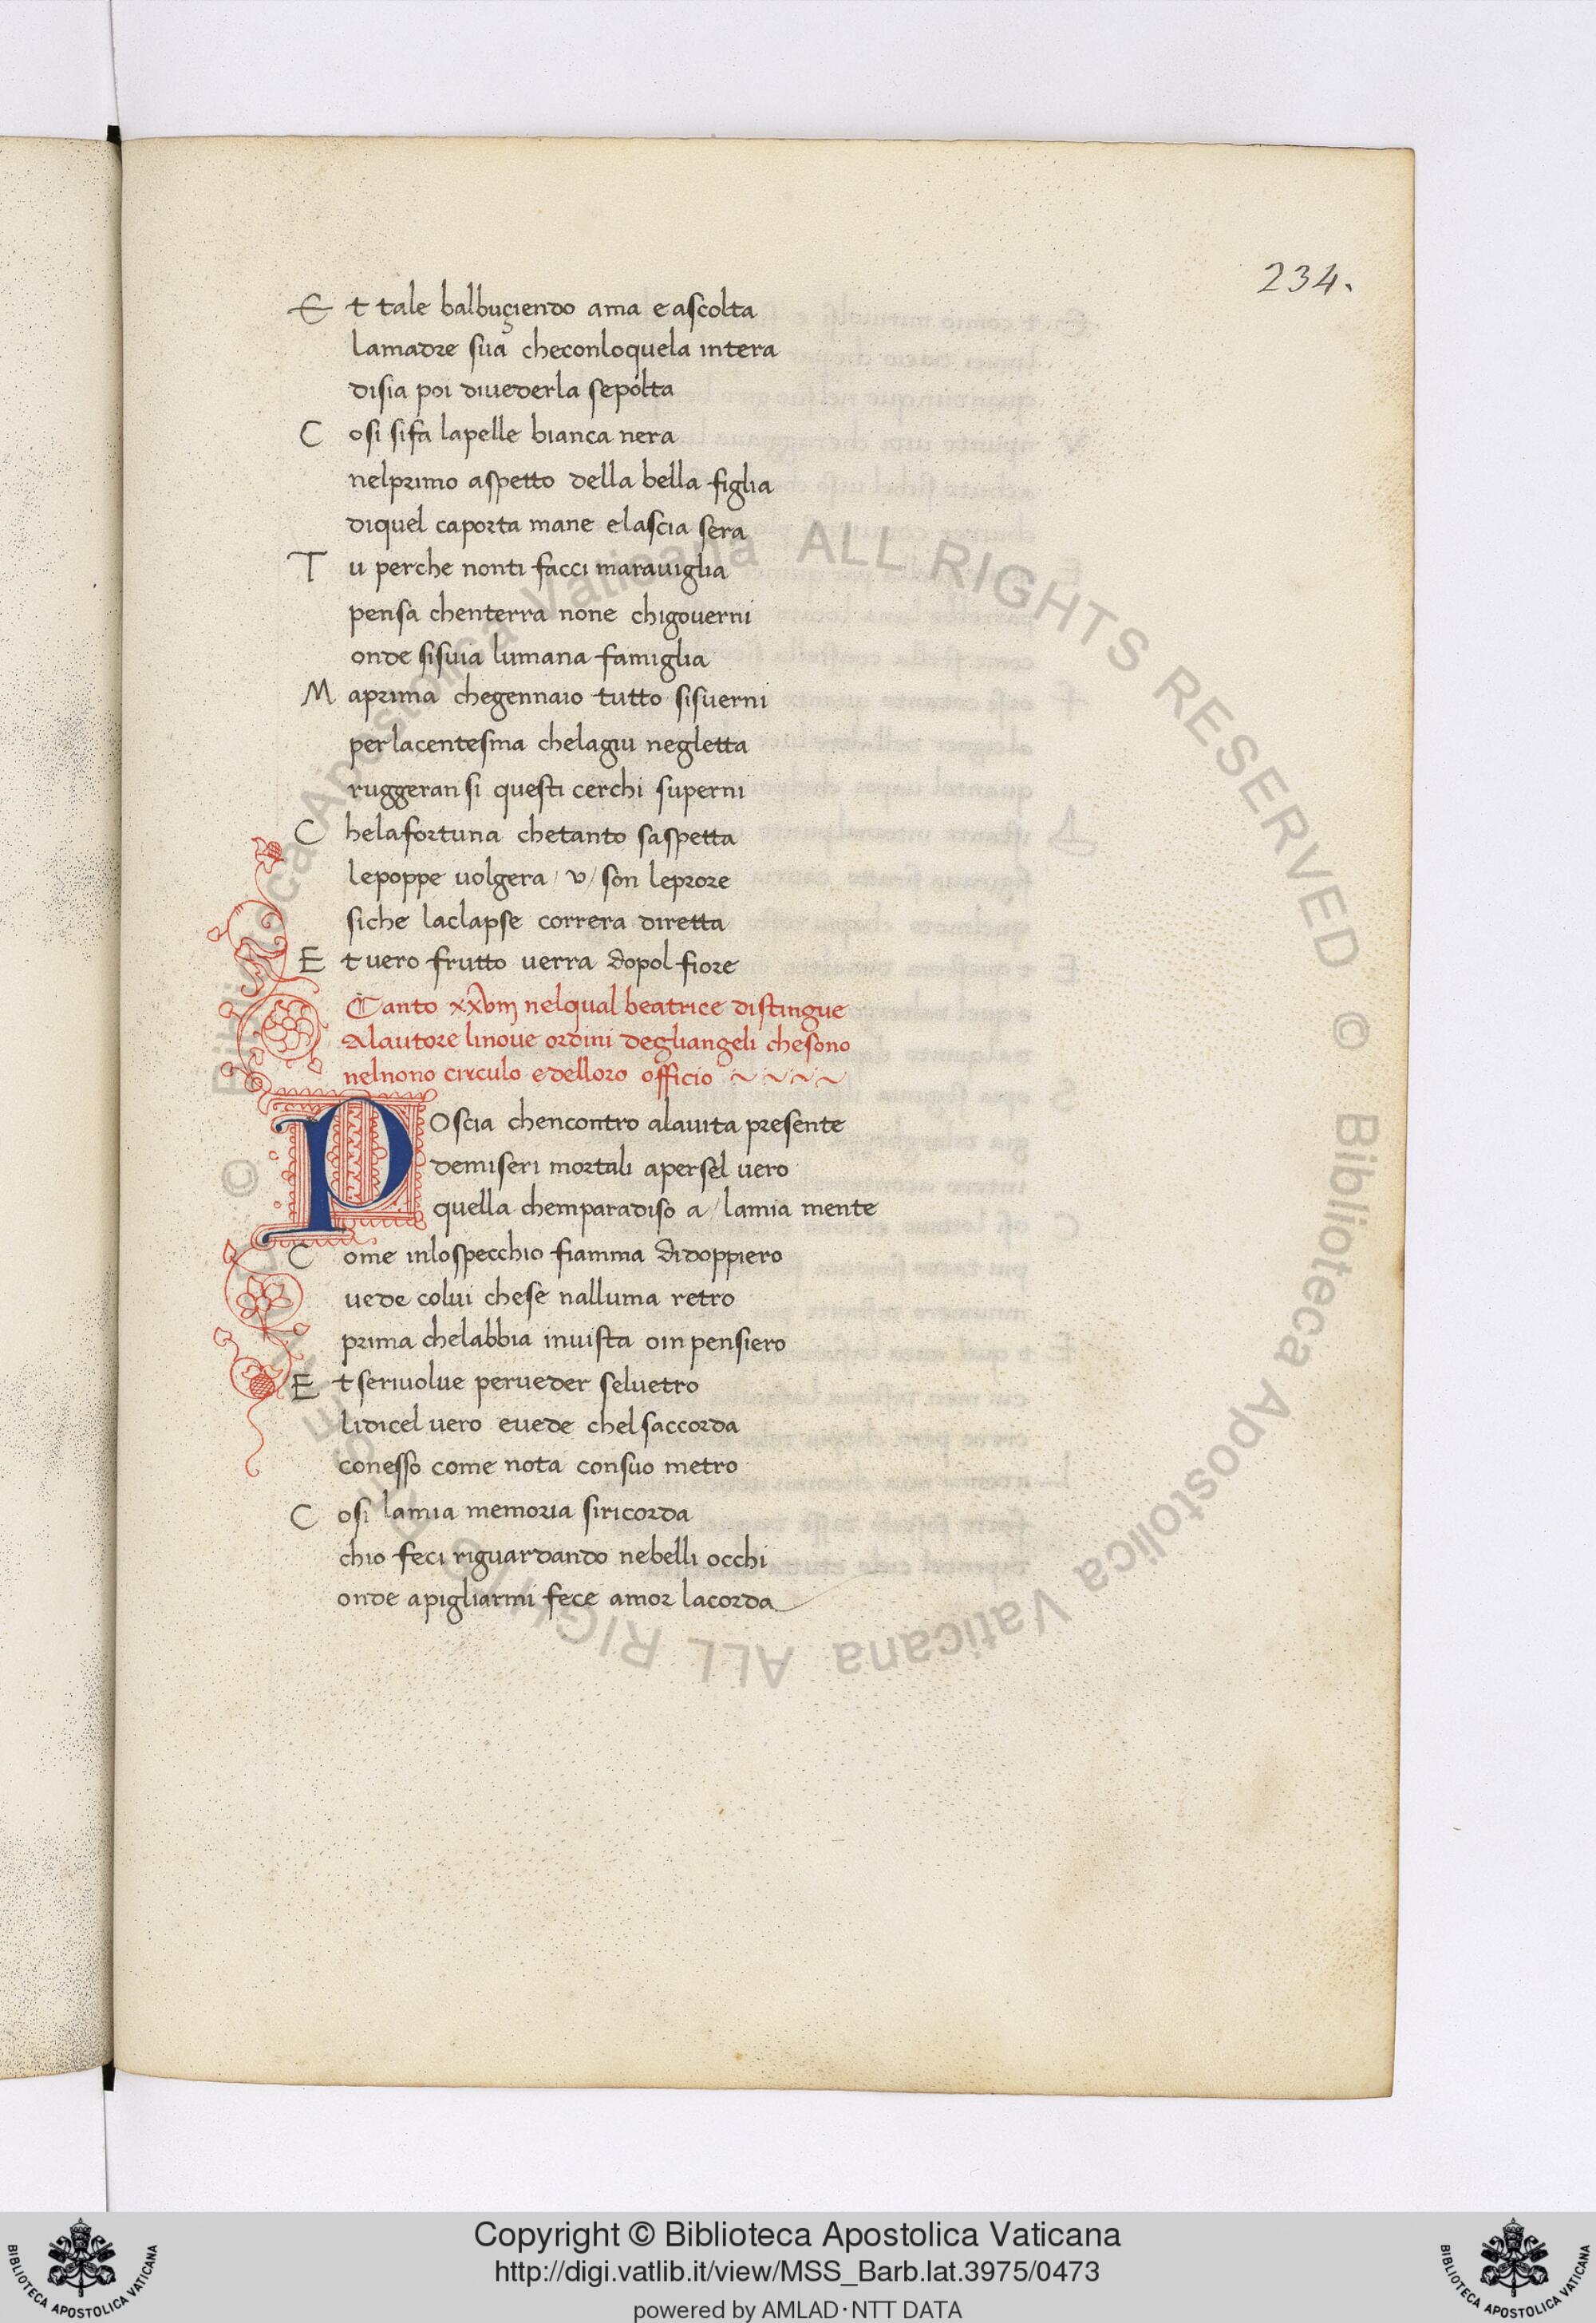 234.
Et tale balbuçiendo ama e ascolta
lamadre sua checonloquela intera
disia poi diuederla sepolta
Cosi sifa lapelle bianca nera
nelprimo aspetto della bella figlia
diquel caporta mane elascia sera
Tu perche nonti facci marauiglia
pensa chenterra none chigouerni
onde sisuia lumana famiglia
Maprima chegennaio tutto sisuerni
perlacentesma chelagiu negletta
ruggeran si questi cerchi superni
Chelafortuna chetanto saspetta
lepoppe uolgera / v / son leprore
siche laclapse correra diretta
Et uero frutto uerra dopol fiore
Canto xxvm nelqual beatrice distingue
alautore linoue ordini degliangeli chesono
nelnono circulo edelloro officio ~ ~ ~ ~
POscia chencontro alauita presente
demiseri mortali apersel uero
quella chemparadiso a / lamia mente
Come inlospecchio fiamma didoppiero
uede colui chese nalluma retro
prima chelabbia inuista oin pensiero
Et seriuolue perueder seluetro
lidicel uero euede chel saccorda
conesso come nota consuo metro
Cosi lamia memoria siricorda
chio feci riguardando nebelli occhi
onde apigliarmi fece amor lacorda
© Biblioteca Apostolica Vaticana ALL RIGHTS RESERVED © Biblioteca Apostolica Vaticana ALL RIGHTS RESERVED
BIBLIOTECA APOSTOLICA VATICANA
Copyright © Biblioteca Apostolica Vaticana
http://digi.vatlib.it/view/MSS_Barb.lat.3975/0473
powered by AMLAD·NTT DATA
BIBLIOTECA APOSTOLICA VATICANA